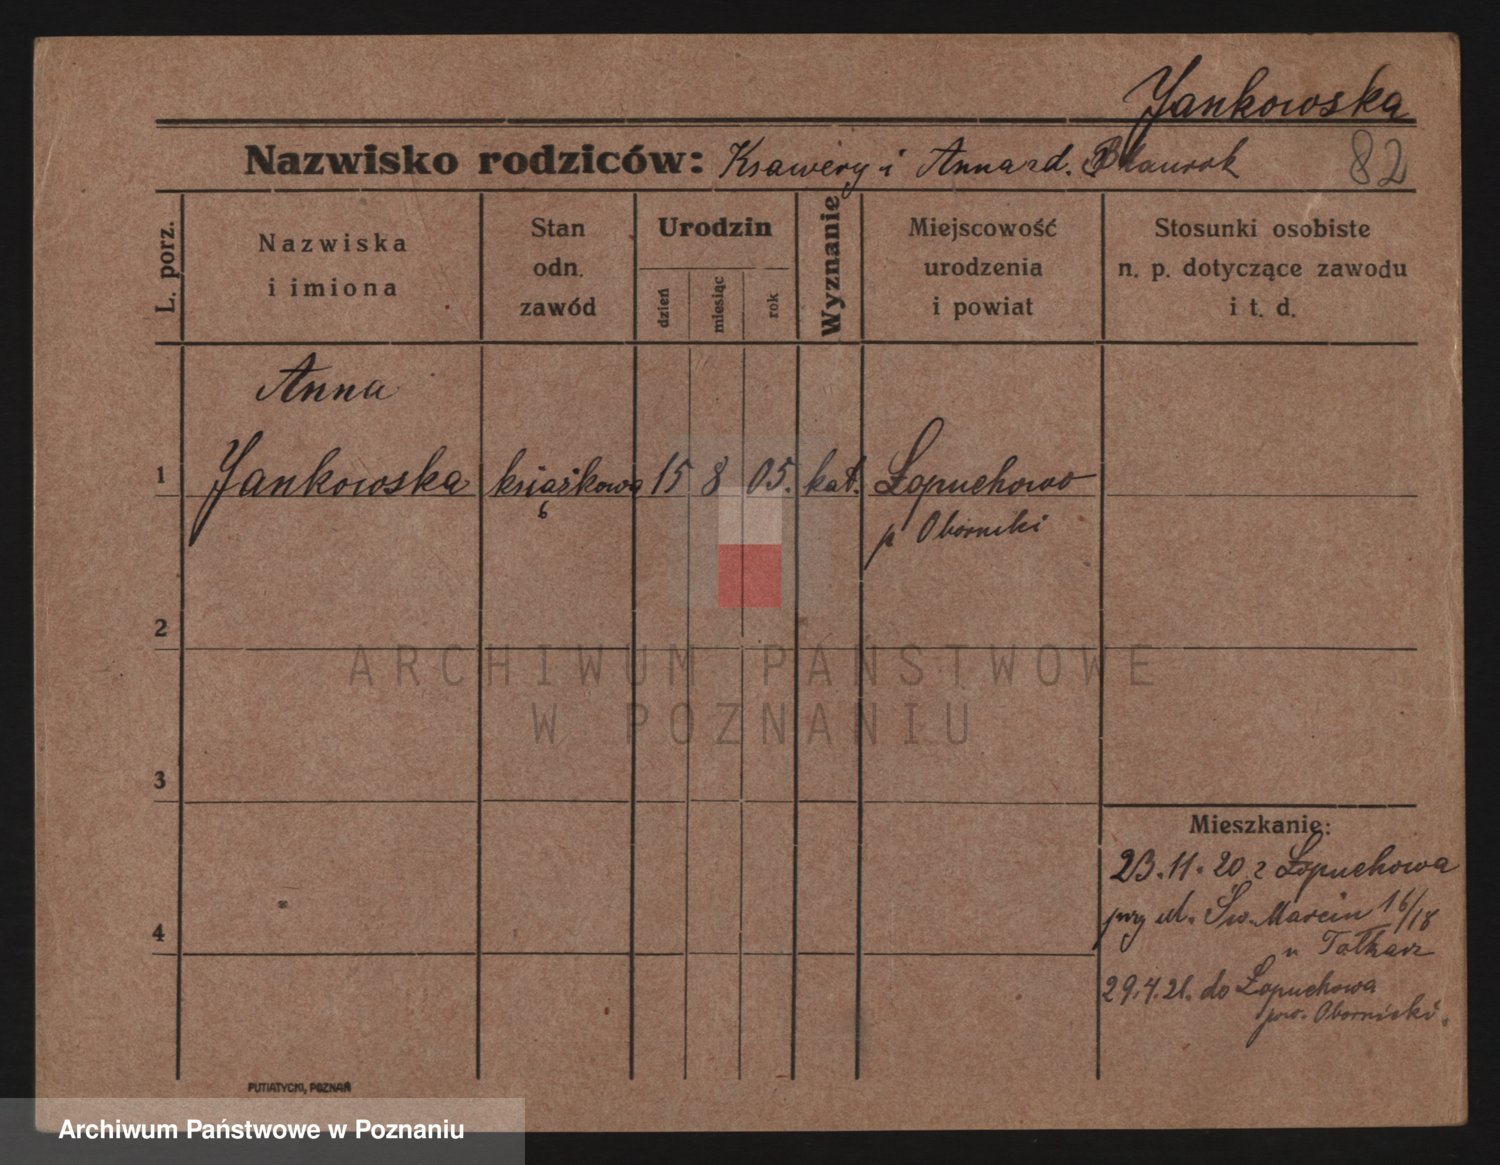 Jankowska
Nazwisko rodziców: Ksawery i Anna zd.
82
L. porz.
Nazwiska
i imiona
Stan
odn.
zawód
Urodzin
dzień
miesiąc
rok
Wyznanie
Miejscowość
urodzenia
i powiat
Stosunki osobiste
n. p. dotyczące zawodu
i t. d.
Anna
1 Jankowska książkowa 15 8 05. kat. Łopuchowo
6
p Oborniki
2
ARCHIWUM PAŃSTWOWE
W POZNANIU
3
Mieszkanie:
23.11.20 z Łopuchowa
przy ul. Św. Marcin 16/18
4
u
29.4.21. do Łopuchowa
pow. Obornicki.
PUTIATYCKI, POZNAŃ
Archiwum Państwowe w Poznaniu